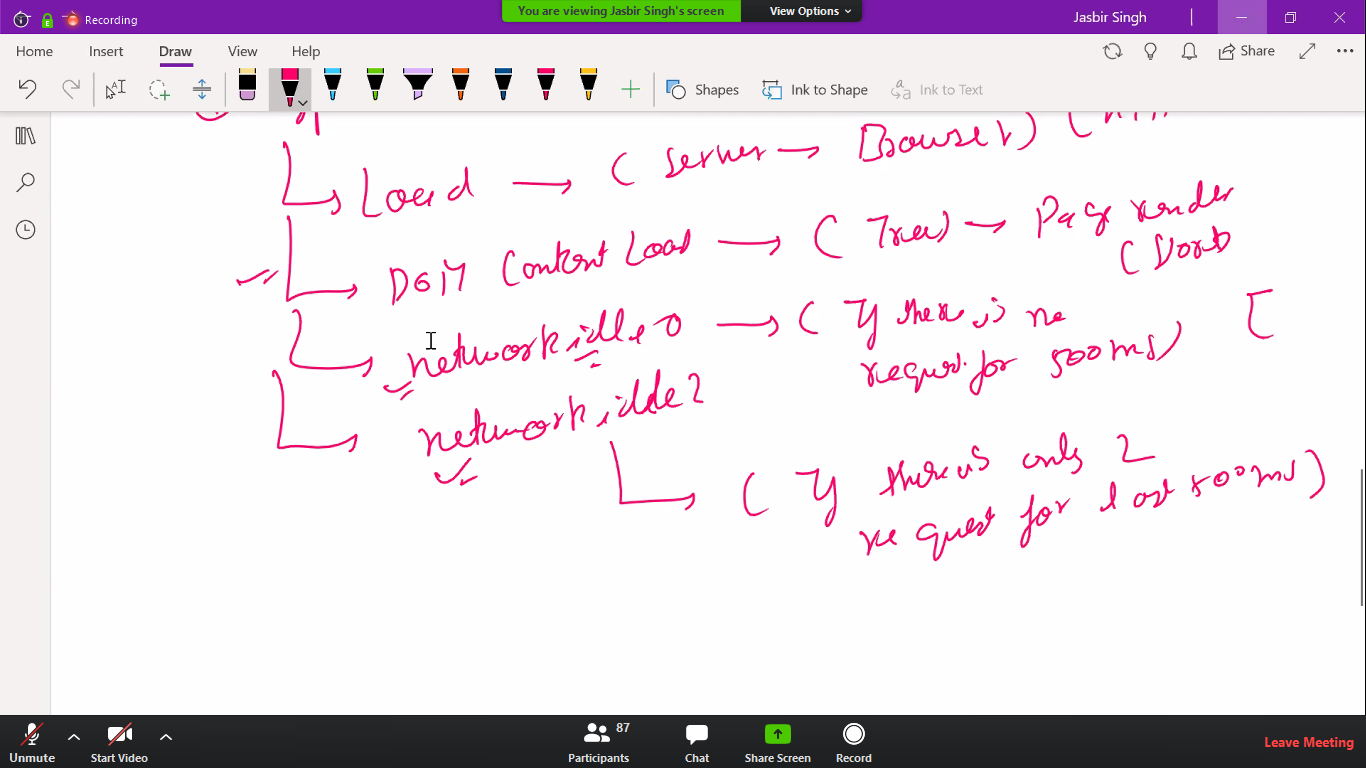 Recording
You are viewing Jasbir Singh's screen
View Options
Jasbir Singh
Home Insert Draw View Help
Share
Shapes Ink to Shape Ink to Text
Load → (Server → Browser)
DOM Content Load → (Tree) → Page render
networkidle 0 → (If there is no
request for 500ms) [
networkidle2
(If there is only 2
request for last 500ms)
Unmute Start Video
87
Participants Chat Share Screen Record
Leave Meeting